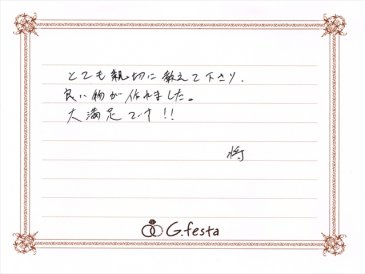 とても親切に教えて下さり、
良い物が作れました。
大満足です!!
将
G.festa